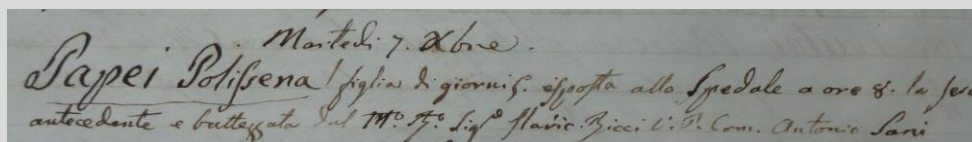 Martedi 7. Xbre.
Papei Polissena figlia di giorni 5. esposta allo Spedale a ore 8. la sera
antecedente e battezzata dal M.o R.o Sig.e Ricci Com. Antonio Sani